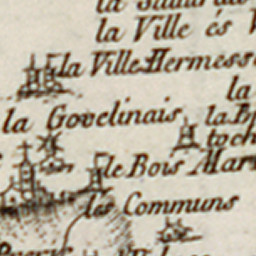 la Ville és
la Ville Hermess
la
la Govelinais
la B
toch
le Bois Mar
les Communs